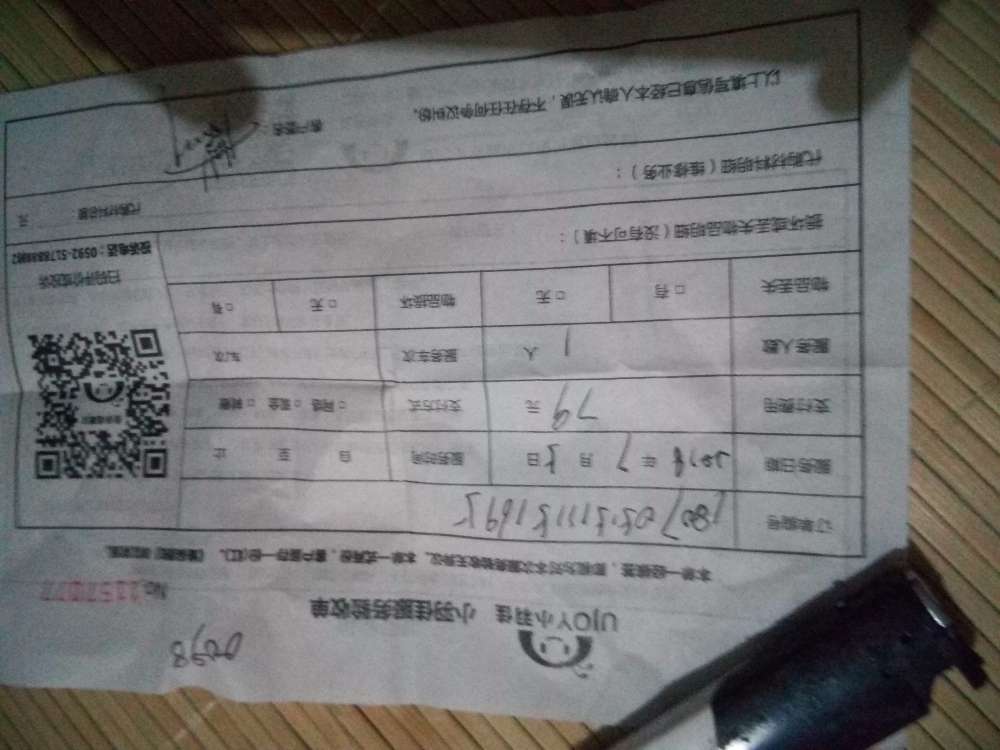 0098
UJOY小羽佳 小羽佳服务验收单
No 1157077
本单一经签署，即视为对本次服务验收无异议。本单一式两份，客户留存一份(红)，
订单编号
服务日期 2018 年 7 月 5 日 服务时间 自 至 止
支付费用 79 元 支付方式 □ 网络 □ 现金 □ 转账
服务人数 1 人 服务车次 车/次
物品丢失 □ 有 □ 无 物品损坏 □ 无 □ 有
扫码评价或投诉
投诉电话：0592-5178888
损坏或丢失物品明细（没有可不填）：
代购材料明细（维修业务）：
代购材料总额 元
以上填写信息已经本人确认无误，不存在任何争议纠纷。
客户签名：